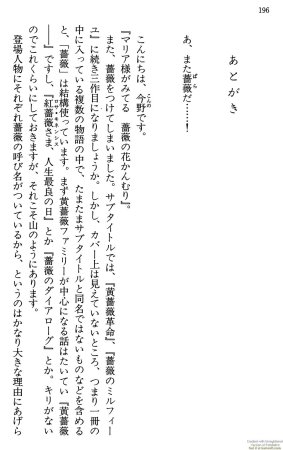 196
あとがき
あ、また薔薇だ……！
ばら
こんにちは、今野です。
こんの
『マリア様がみてる　薔薇の花かんむり』。
また、薔薇をつけてしまいました。サブタイトルでは、『黄薔薇革命』、『薔薇のミルフィー
ユ』に続き三作目になりましょうか。しかし、カバー上は見えていないところ、つまり一冊の
中に入っている複数の物語の中で、たまたまサブタイトルと同名ではないものなどを含める
と、「薔薇」は結構使っています。まず黄薔薇ファミリーが中心になる話はたいてい『黄薔薇
――』ですし、『紅薔薇さま、人生最良の日』とか『薔薇のダイアローグ』とか。キリがない
のでこれくらいにしておきますが、それこそ山のようにあります。
登場人物にそれぞれ薔薇の呼び名がついているから、というのはかなり大きな理由にあげら